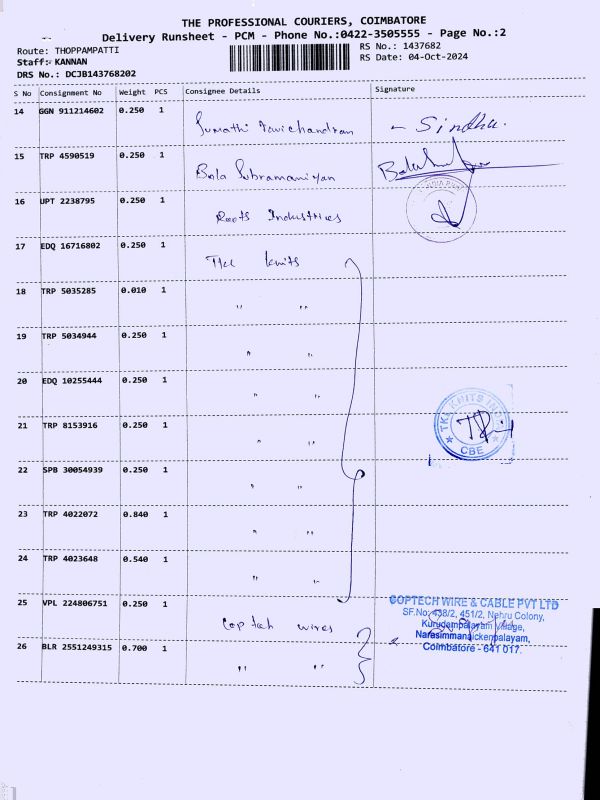 THE PROFESSIONAL COURIERS, COIMBATORE
Delivery Runsheet - PCM - Phone No.:0422-3505555 - Page No.:2
Route: THOPPAMPATTI
RS No.: 1437682
Staff: KANNAN
RS Date: 04-Oct-2024
DRS No.: DCJB143768202
S No Consignment No Weight PCS Consignee Details Signature
14 GGN 911214602 0.250 1 Sumathi Ravichandran - Sindhu.
15 TRP 4590519 0.250 1 Bala Subramaniyan
16 UPT 2238795 0.250 1 Roots Industries
17 EDQ 16716802 0.250 1 TKL knits
18 TRP 5035285 0.010 1 " "
19 TRP 5034944 0.250 1 " "
20 EDQ 10255444 0.250 1 " "
21 TRP 8153916 0.250 1 " "
TKL KNITS IN
CBE
22 SPB 30054939 0.250 1 " "
23 TRP 4022072 0.840 1 " "
24 TRP 4023648 0.540 1 " "
25 VPL 224806751 0.250 1 Coptech wires
COPTECH WIRE & CABLE PVT LTD
SF.No: 438/2, 451/2, Nehru Colony,
Kurudampalayam Village,
Narasimmanaickenpalayam,
Coimbatore - 641 017.
26 BLR 2551249315 0.700 1 " "